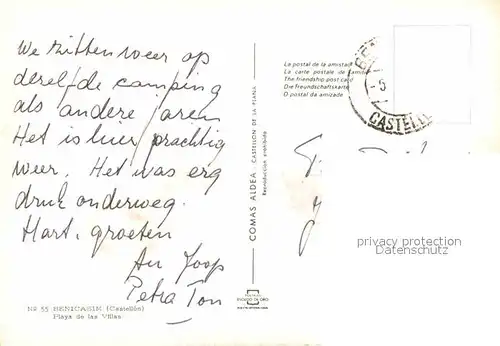 We zitten weer op
dezelfde camping
als andere jaren
Het is hier prachtig
weer. Het was erg
druk onderweg.
Hart. groeten
An Joop
Petra Ton
Nº 55 BENICASIM (Castellón)
Playa de las Villas
COMAS ALDEA - CASTELLON DE LA PLANA
Reproducción prohibida
La postal de la amistad
La carte postale de l'amitié
The friendship post card
Die Freundschaftskarte
O postal da amizade
- 5
CASTELLO
privacy protection
Datenschutz